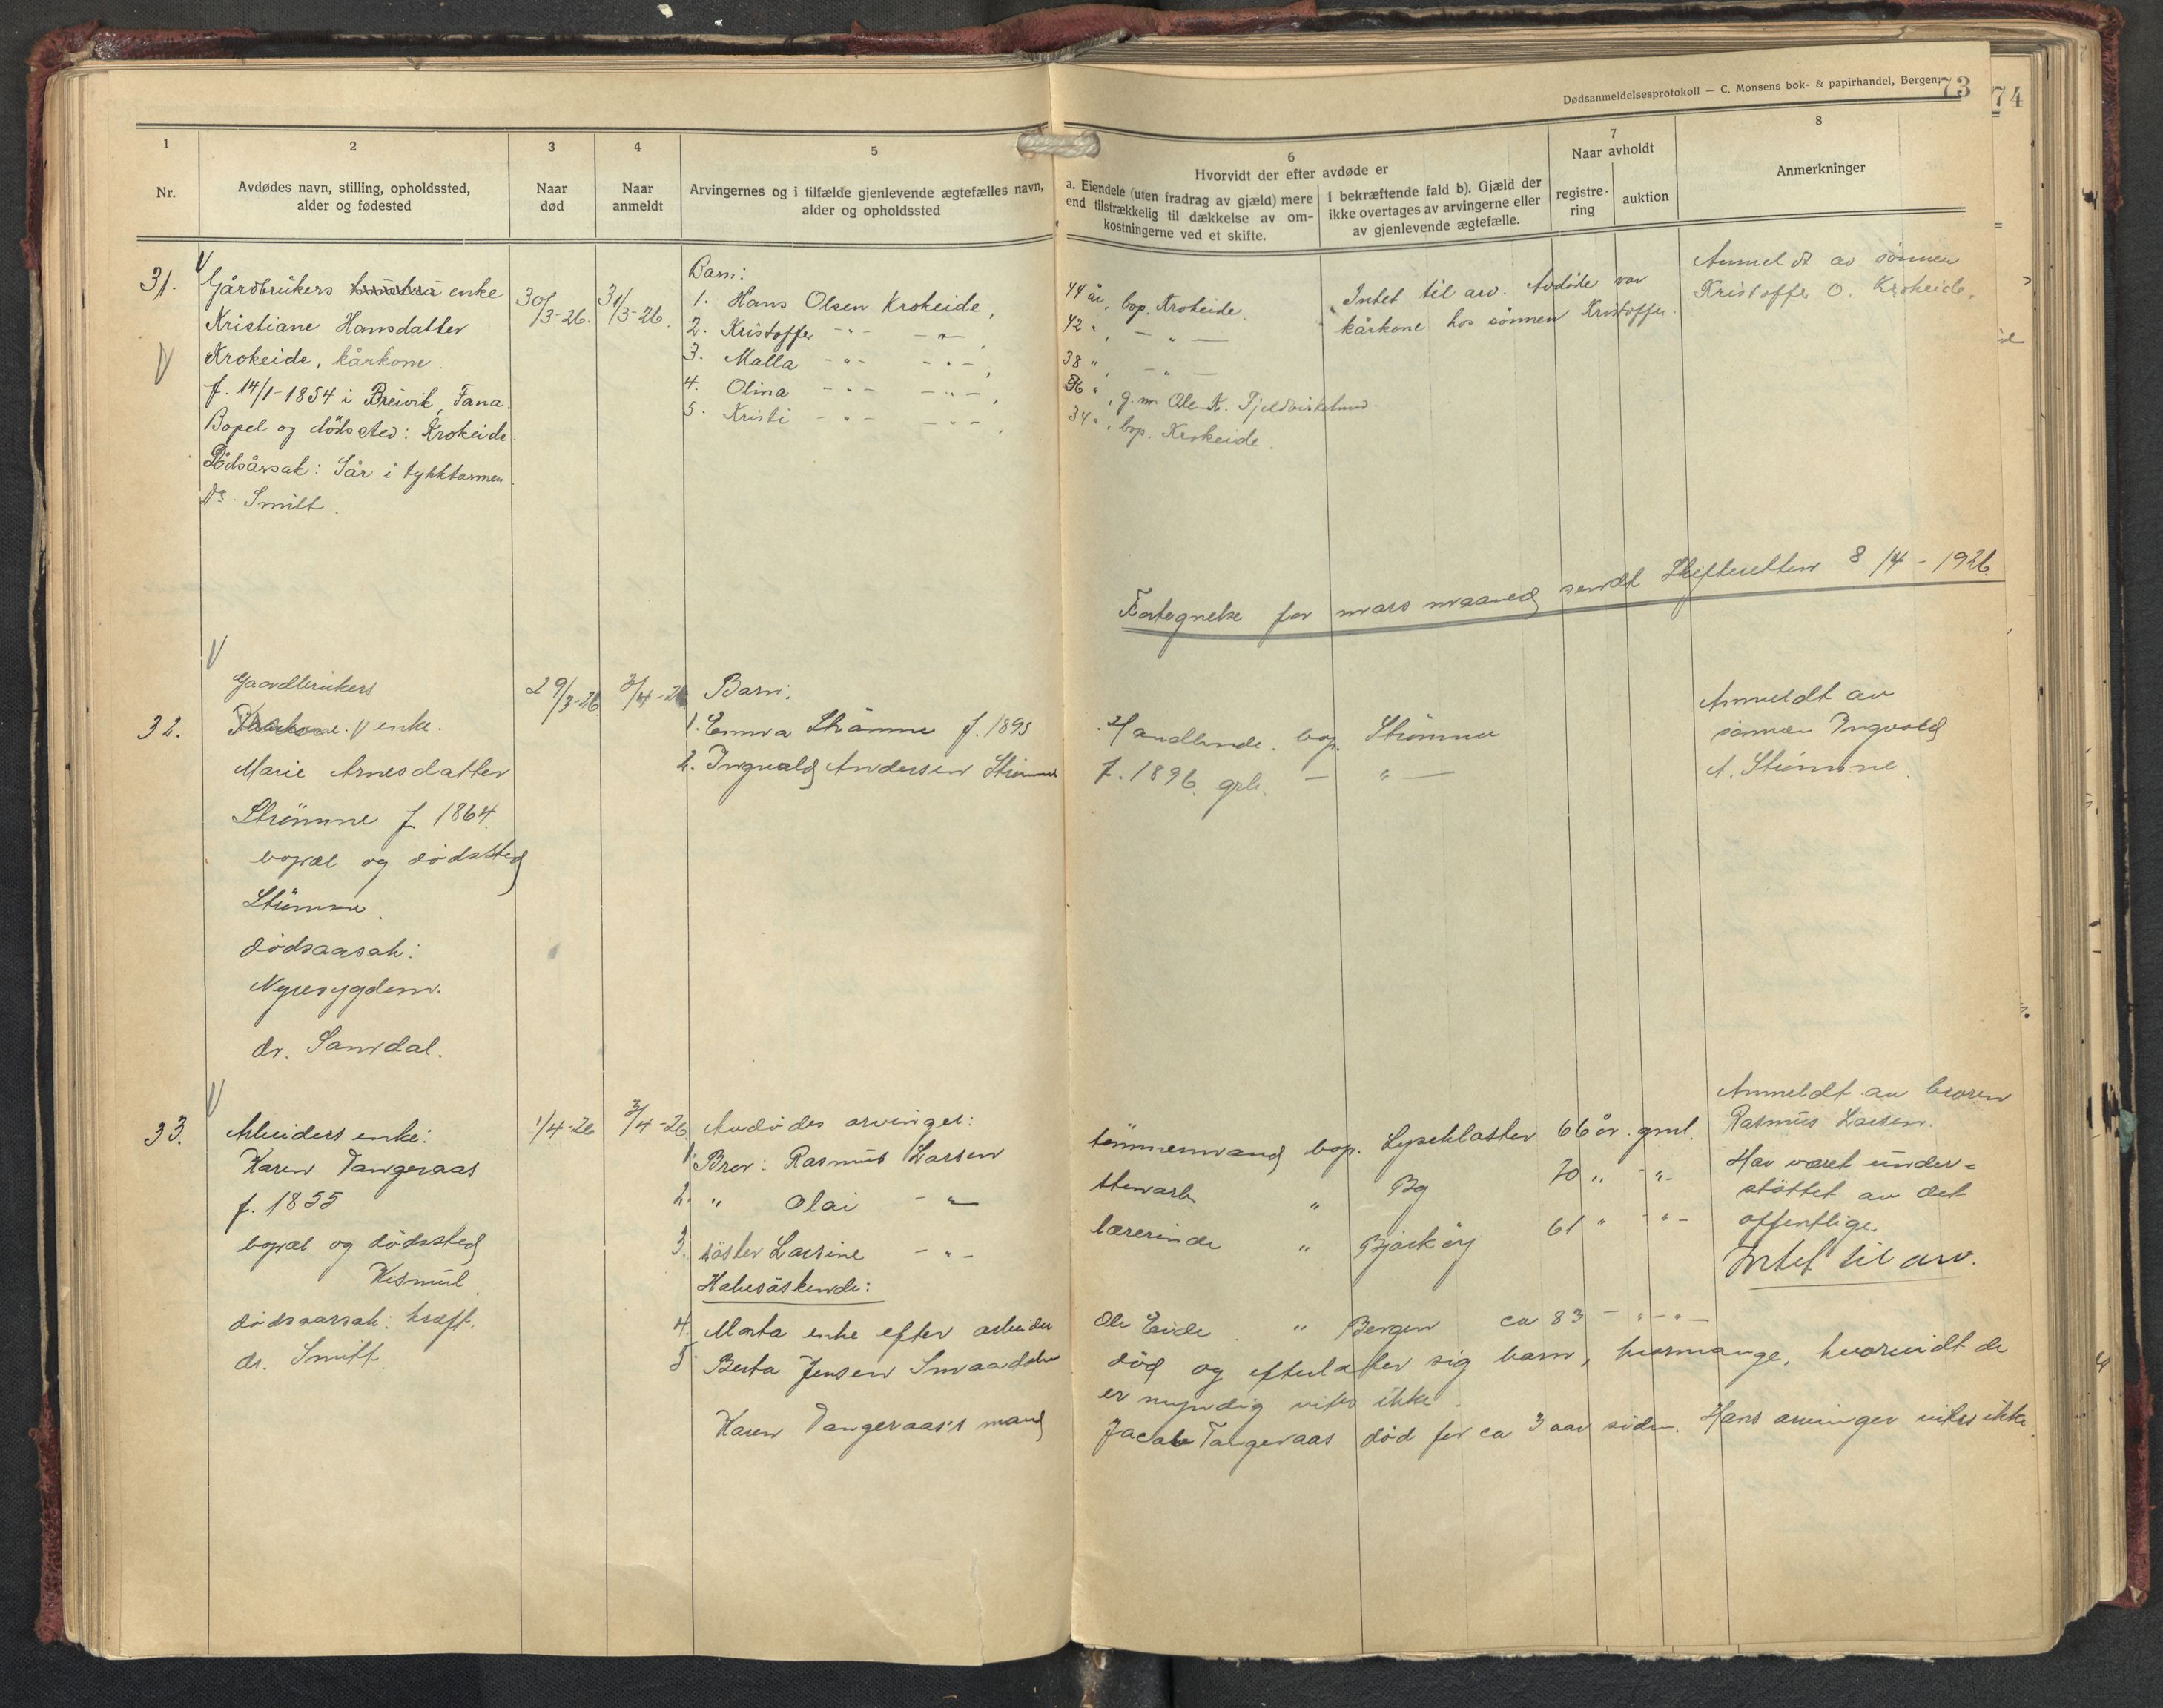 Dødsanmeldelsesprotokoll — C. Monsens bok- & papirhandel, Bergen.
73
74
1
Nr.
2
Avdødes navn, stilling, opholdssted,
alder og fødested
3
Naar
død
4
Naar
anmeldt
5
Arvingernes og i tilfælde gjenlevende ægtefælles navn,
alder og opholdssted
6
Hvorvidt der efter avdøde er
a. Eiendele (uten fradrag av gjæld) mere
end tilstrækkelig til dækkelse av om-
kostningerne ved et skifte.
I bekræftende fald b). Gjæld der
ikke overtages av arvingerne eller
av gjenlevende ægtefælle.
7
Naar avholdt
registre-
ring
auktion
8
Anmerkninger
31.
Gårdbrukers enke
Kristiane Hansdatter
Krokeide, kårkone.
f. 14/1-1854 i Breivik, Fana.
Bopel og dödsted: Krokeide.
Dödsårsak: Sår i tykktarmen.
Dr. Smitt.
30/3-26.
31/3-26.
Barn:
1. Hans Olsen Krokeide, 44 år, bop. Krokeide.
2. Kristoffer -"- -"-, 42 ", - " -
3. Malla -"- -"-, 38 ", - " -
4. Olina -"- -"-, 36 ", g.m. Ole K. Fjeldbirkelund.
5. Kristi -"- -"-, 34 ", bop. Krokeide.
Intet til arv. Avdöde var
kårkone hos sönnen Kristoffer.
Anmeldt av sönnen
Kristoffer O. Krokeide.
Fortegnelse for mars maaned sendt Skifteretten 8/4-1926.
32.
Gaardbrukers
enke.
Marie Arnesdatter
Strömme f. 1864.
bopæl og dödssted
Strömme.
dödsaarsak:
Nyresygdom.
dr. Sandal.
29/3-26
3/4-26
Barn:
1. Emma Strömme f. 1895 Handlende. bop. Strömme
2. Ingvald Andersen Strömme f. 1896. grbr. - " -
Anmeldt av
sönnen Ingvald
A. Strömme.
33.
Arbeiders enke:
Karen Tangeraas
f. 1855
bopæl og dödssted
Kismul.
dödsaarsak: kræft.
dr. Smitt.
1/4-26
3/4-26
Avdödes arvinger:
1. Bror: Rasmus Larsen tömmermand bop. Lyseklaster 66 år. gml.
2. " Olai - " - stenarb. " Bg 70 " - " -
3. söster Larsine - " - lærerinde " Bjarköy 61 " - " -
Halvsöskende:
4. Marta enke efter arbeider Ole Eide. " Bergen ca 83 - " - " -
5. Berta Jensen död og efterlater sig barn, hvormange, hvorvidt de
er myndig vites ikke.
Karen Tangeraas's mand Jacob Tangeraas död for ca 3 aar siden. Hans arvinger vites ikke.
Anmeldt av broren
Rasmus Larsen.
Har været under=
stöttet av det
offentlige.
Intet til arv.